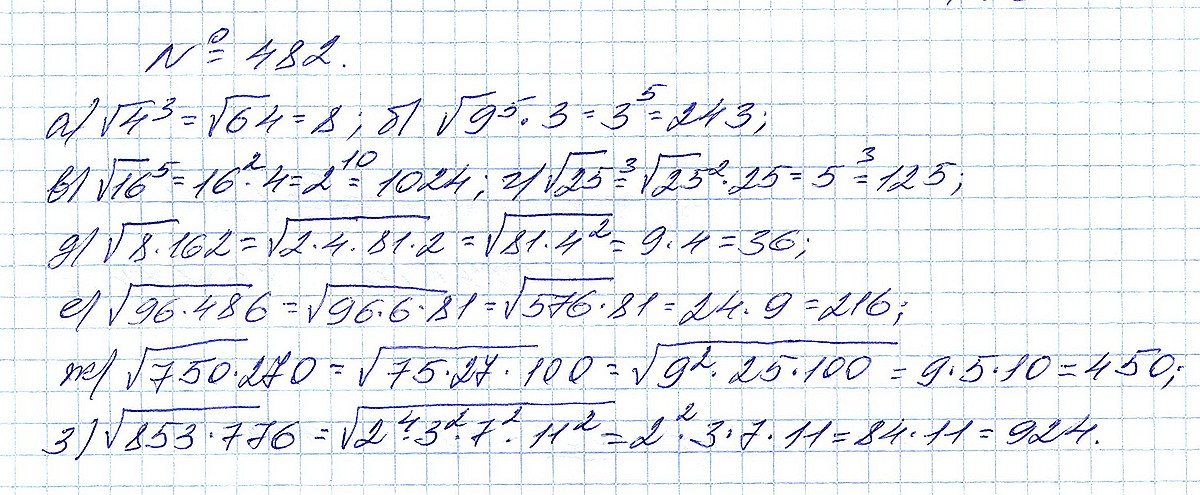 № 482.
а) √4³ = √64 = 8; б) √9⁵ · 3 = 3⁵ = 243;
в) √16⁵ = 16² · 4 = 2¹⁰ = 1024; г) √25³ = √25² · 25 = 5³ = 125;
д) √8 · 162 = √2 · 4 · 81 · 2 = √81 · 4² = 9 · 4 = 36;
е) √96 · 486 = √96 · 6 · 81 = √576 · 81 = 24 · 9 = 216;
ж) √750 · 270 = √75 · 27 · 100 = √9² · 25 · 100 = 9 · 5 · 10 = 450;
з) √853 · 776 = √2⁴ · 3² · 7² · 11² = 2² · 3 · 7 · 11 = 84 · 11 = 924.